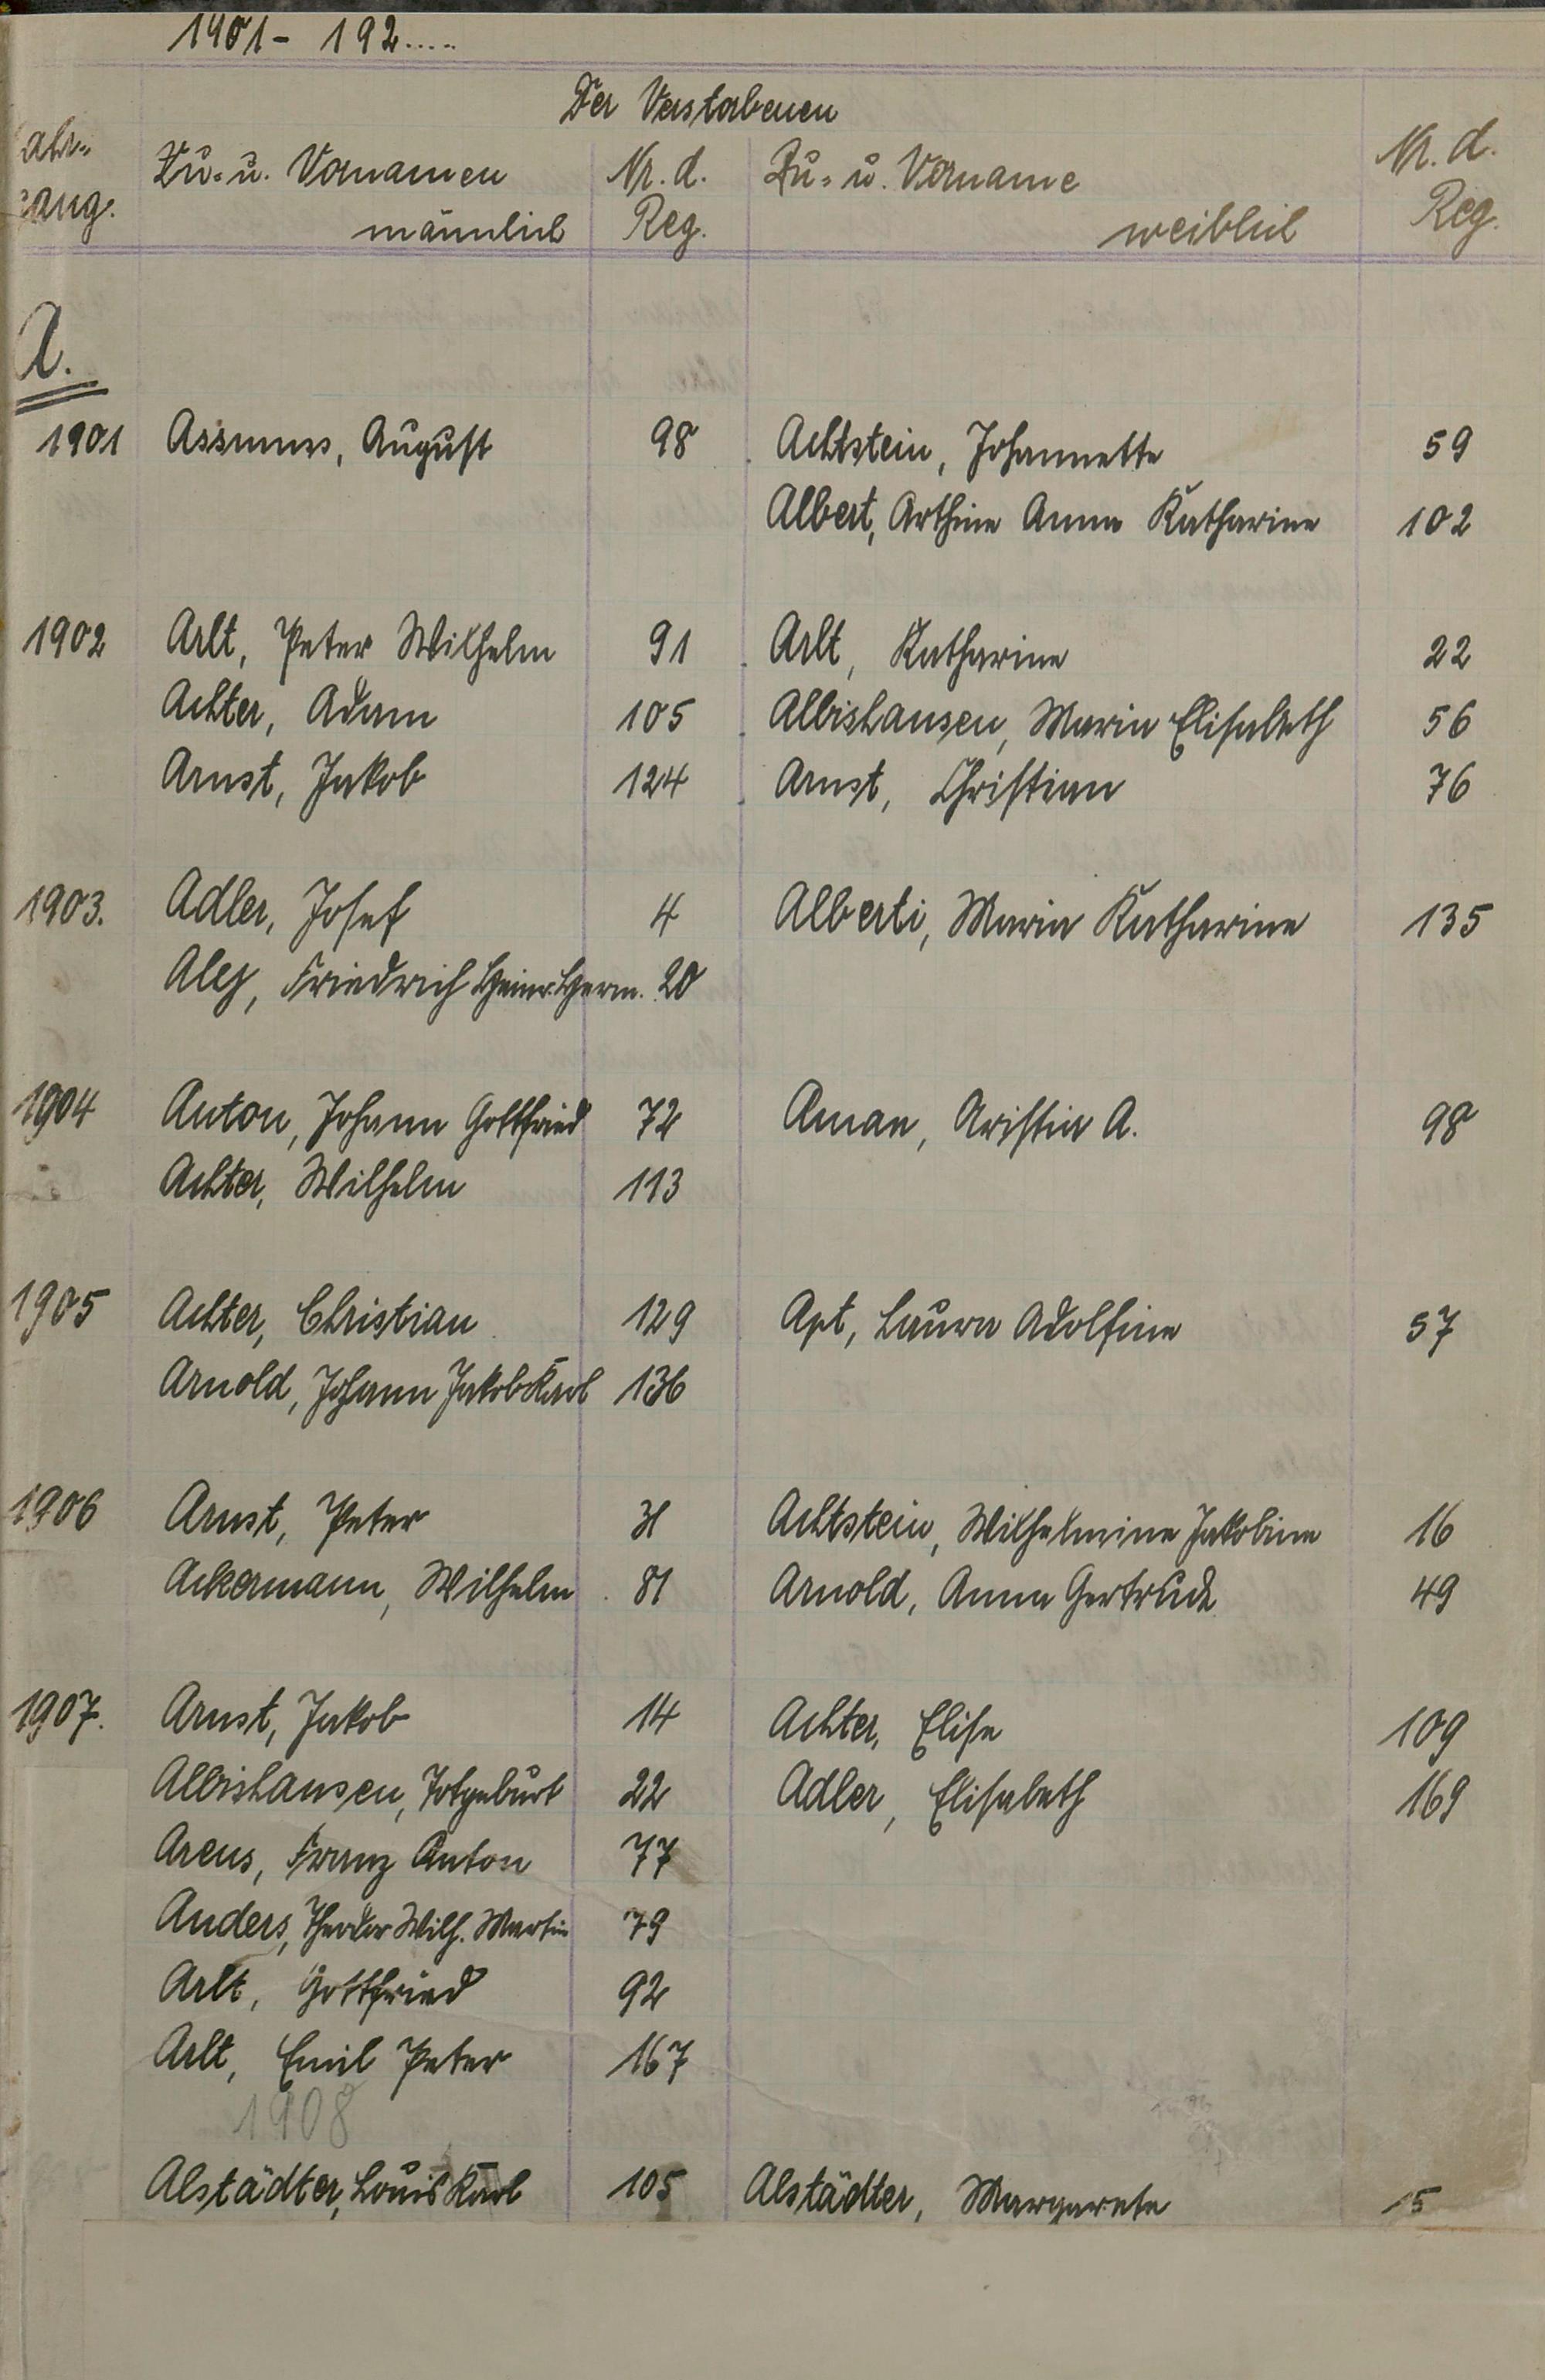 1901 - 192.....
Der Verstorbenen
Jahr- Zu- u. Vornamen Nr. d. Zu- u. Vorname Nr. d.
gang. männlich Reg. weiblich Reg.
A.
1901 Assmus, August 98 Achtstein, Johannette 59
Albert, Anna Katharine 102
1902 Arlt, Peter Wilhelm 91 Arlt, Katharine 22
Achter, Adam 105 Albishausen, Maria Elisabeth 56
Arnst, Jakob 124 Arnst, Christian 76
1903. Adler, Josef 4 Alberti, Maria Katharine 135
Aley, Friedrich Heinr. Herm. 20
1904 Anton, Johann Gottfried 72 Aman, A. 98
Achter, Wilhelm 113
1905 Achter, Christian 129 Apt, Laura Adolfine 57
Arnold, Johann Jakob Karl 136
1906 Arnst, Peter 31 Achtstein, Wilhelmine Jakobine 16
Ackermann, Wilhelm 81 Arnold, Anna Gertrud 49
1907. Arnst, Jakob 14 Achter, Elise 109
Albishausen, Totgeburt 22 Adler, Elisabeth 169
Arens, Franz Anton 77
Anders, Theodor Wilh. Martin 79
Arlt, Gottfried 92
Arlt, Emil Peter 167
1908
Alstädter, Louis Karl 105 Alstädter, Margarete 15